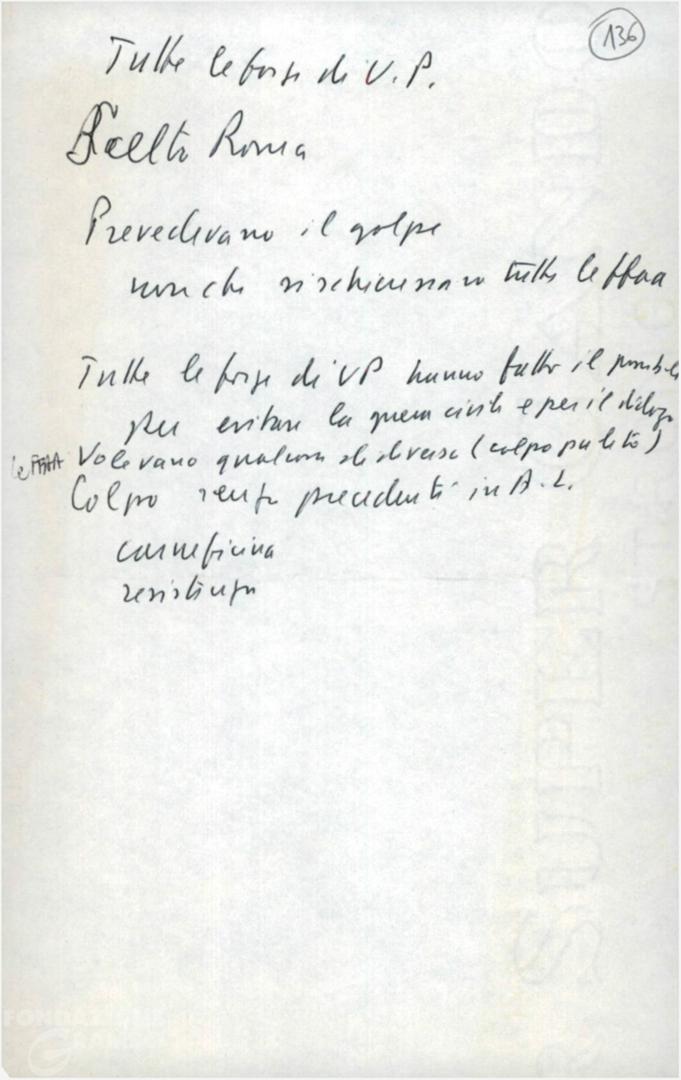 136
Tutte le forze di V.P.
Scelto Roma
Prevedevano il golpe
non che rischiassero tutte le ffaa
Tutte le forze di VP hanno fatto il possibile
per evitare la guerra civile e per il dialogo
le FFAA Volevano qualcosa di diverso (colpo pulito)
Colpo senza precedenti in A.L.
carneficina
resistenza
SUPER
FONDAZIONE